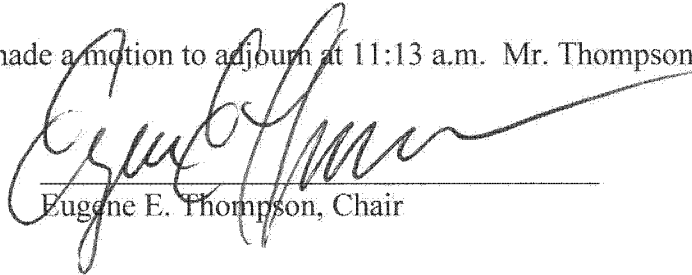 made a motion to adjourn at 11:13 a.m. Mr. Thompson
Eugene E. Thompson, Chair